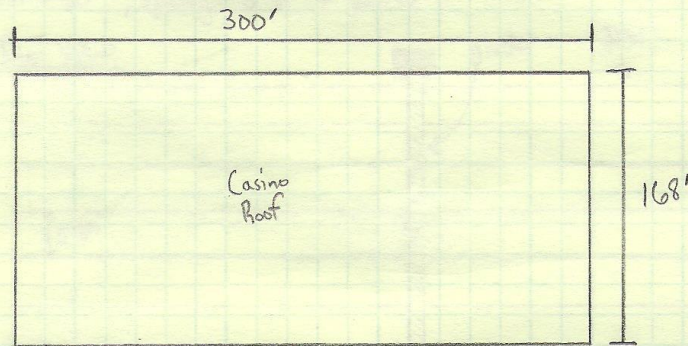 300'
Casino
Roof
168'